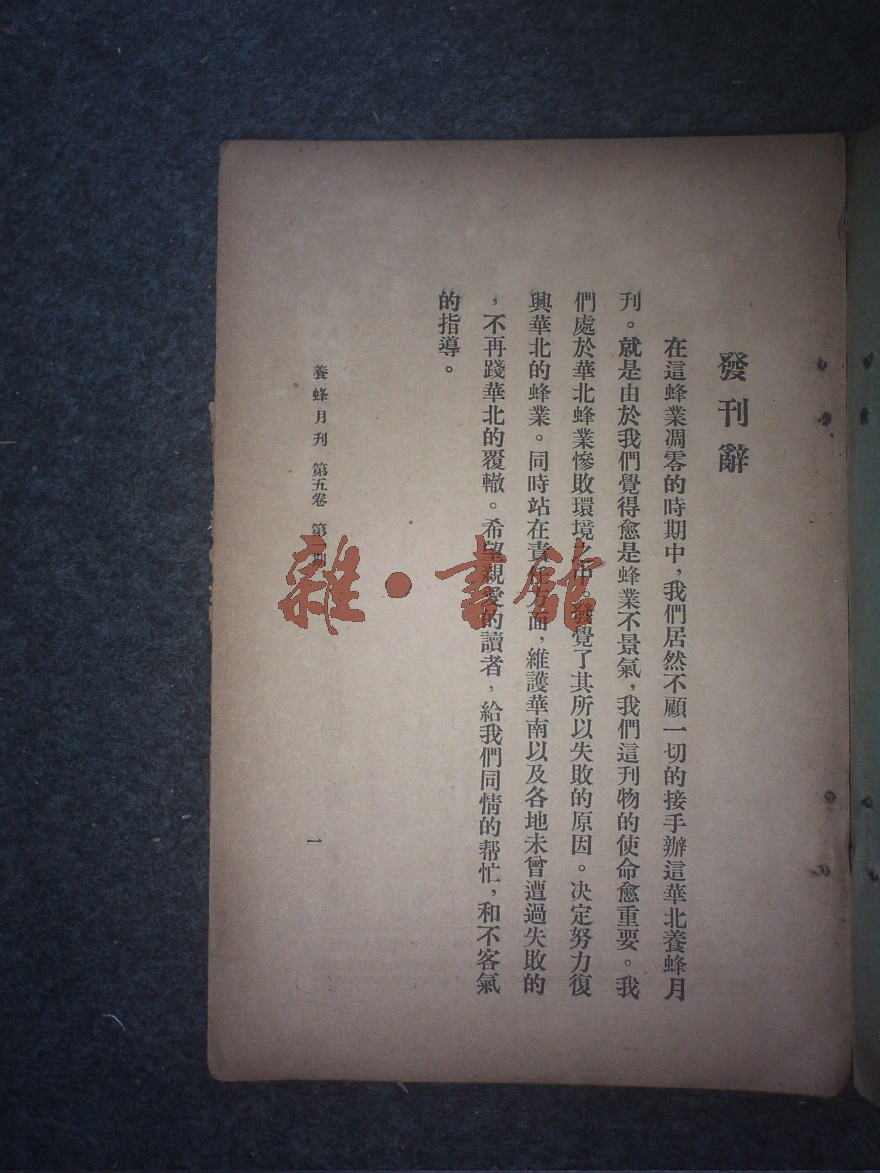 發刊辭
在這蜂業凋零的時期中，我們居然不顧一切的接手辦這華北養蜂月
刊。就是由於我們覺得愈是蜂業不景氣，我們這刊物的使命愈重要。我
們處於華北蜂業慘敗環境之中。發覺了其所以失敗的原因。决定努力復
興華北的蜂業。同時站在責任方面，維護華南以及各地未曾遭過失敗的
，不再踐華北的覆轍。希望親愛的讀者，給我們同情的帮忙，和不客氣
的指導。
養蜂月刊 第五卷 第一期
一
雜·書館